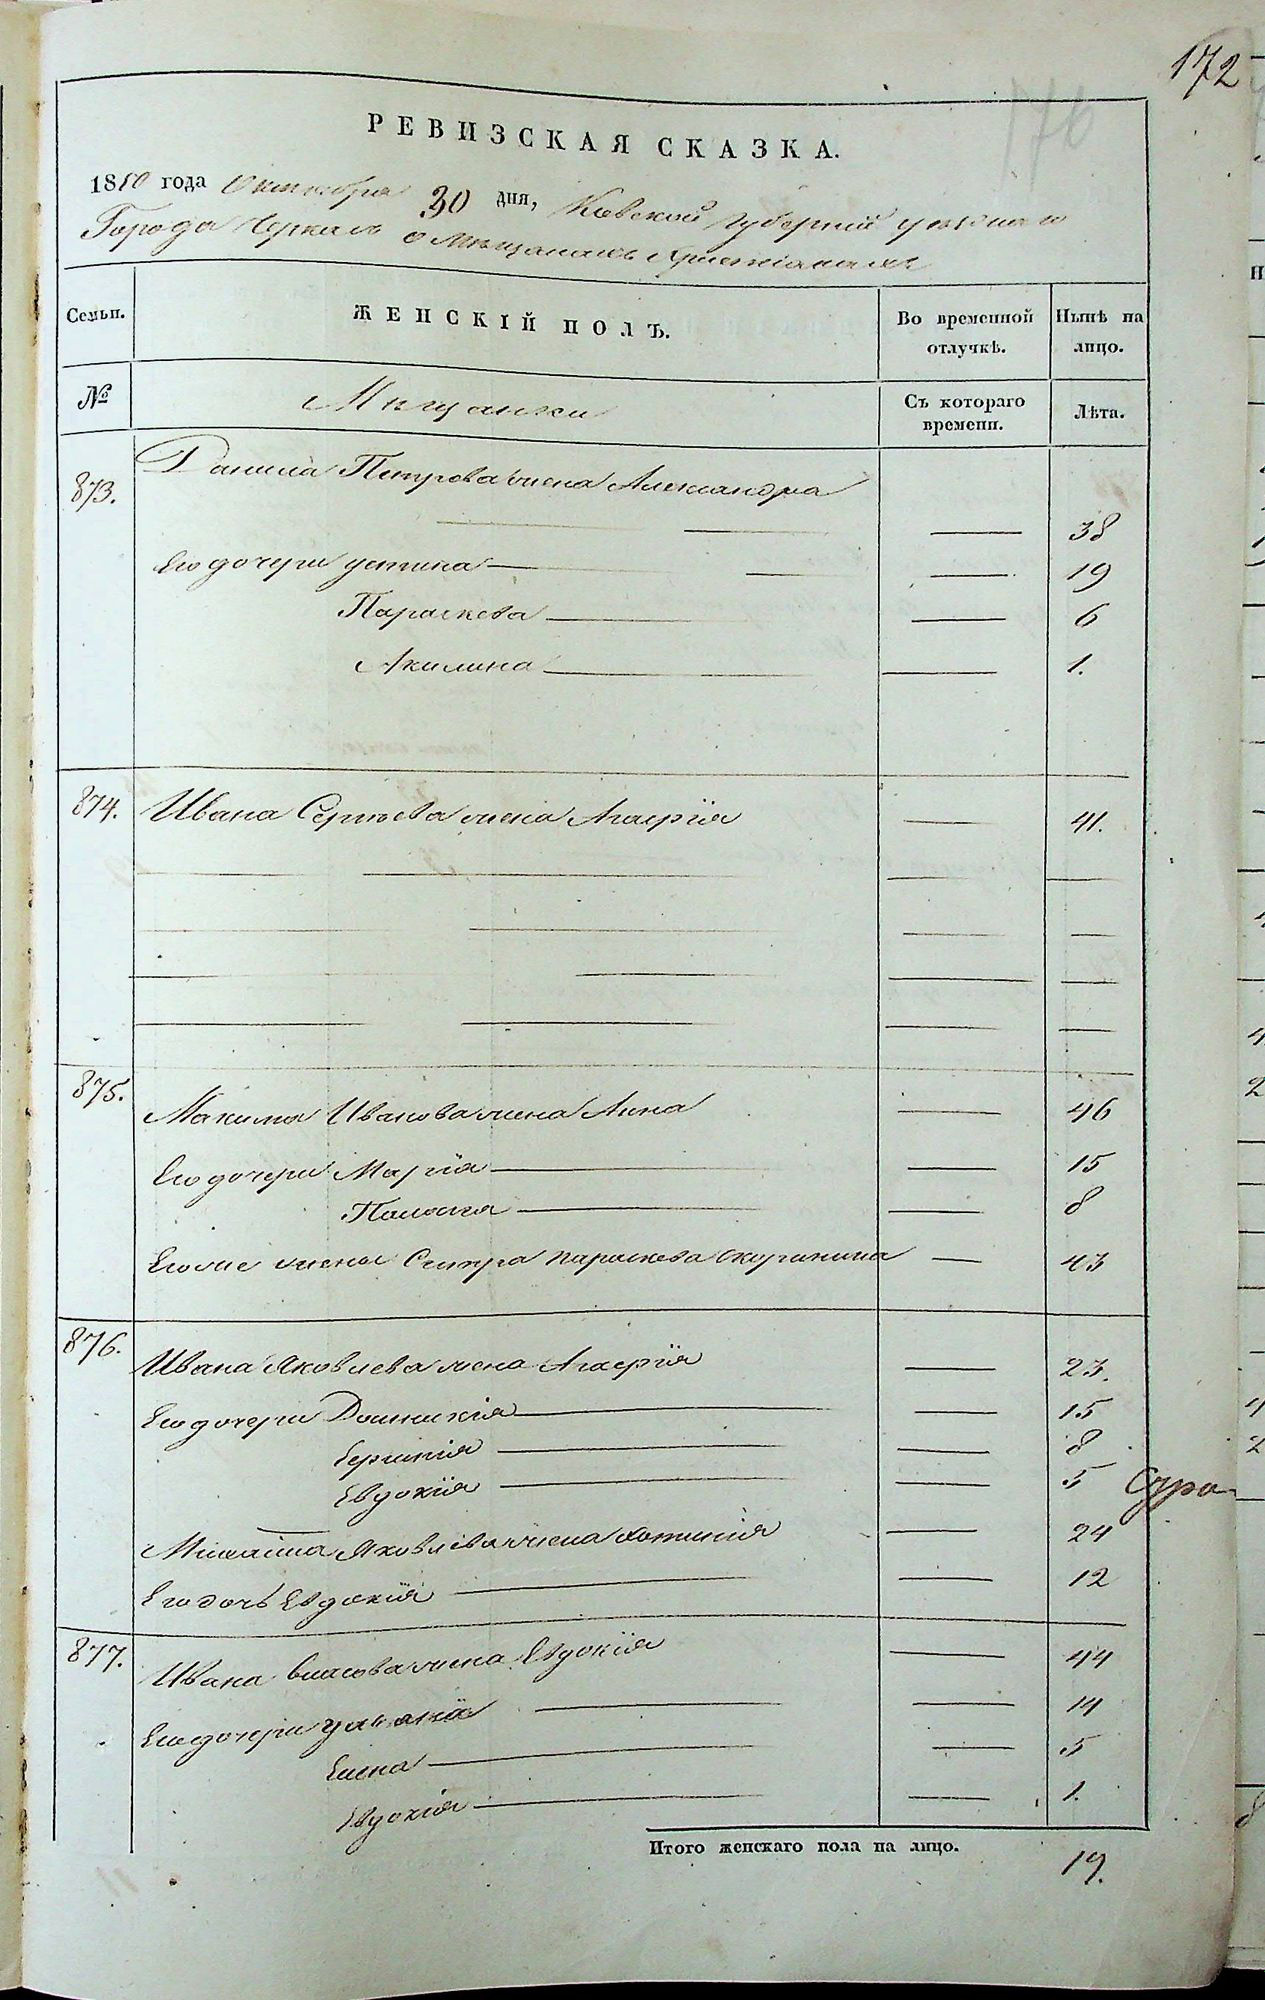 172
176
РЕВИЗСКАЯ СКАЗКА.
1850 года Октября 30 дня, Кіевской Губерніи уѣзднаго
Города Черкасъ о Мѣщанахъ Христіанахъ
Семьи. ЖЕНСКІЙ ПОЛЪ. Во временной отлучкѣ. Нынѣ на лицо.
№ Мѣщанки Съ котораго времени. Лѣта.
873. Данила Петрова жена Александра
38
Его дочери Устина 19
Параскева 6
Акилина 1.
874. Ивана Сергѣева жена Агафія 41.
875. Максима Иванова жена Анна 46
Его дочери Марія 15
Палагея 8
Его же жены Сестра Параскева 43
876. Ивана Яковлева жена Агафія 23.
Его дочери Домникія 15
8
Евдокія 5
Михайла Яковлева жена Фотинія 24
Его дочь Евдокія 12
877. Ивана Власова жена Евдокія 44
Его дочери Ульяна 14
Елена 5
Евдокія 1.
Итого женскаго пола на лицо. 19.